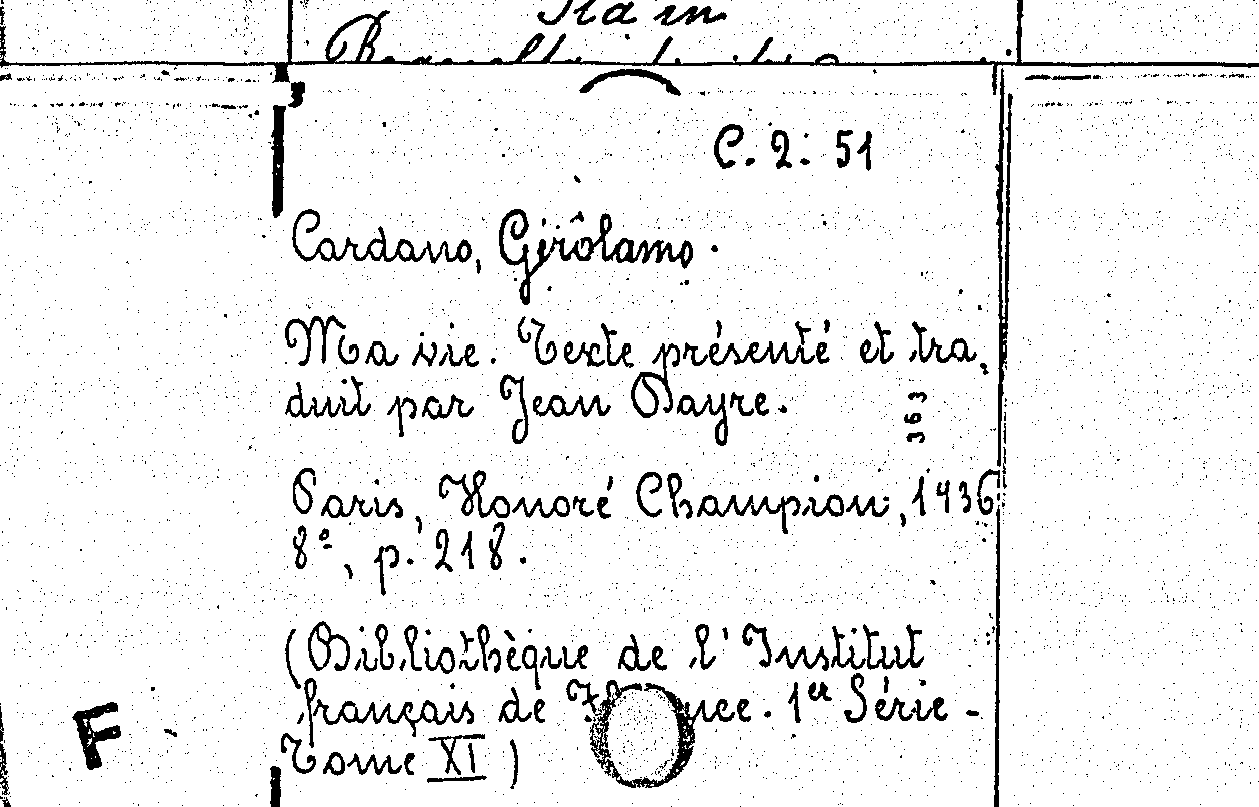 C. 2: 51
Cardano, Gérôlamo.
Ma vie. Texte présenté et tra,
duit par Jean Dayre.
363
Paris, Honoré Champion, 1936
8°, p. 218.
(Bibliothèque de l'Institut
français de 1er Série -
Tome XI)
F